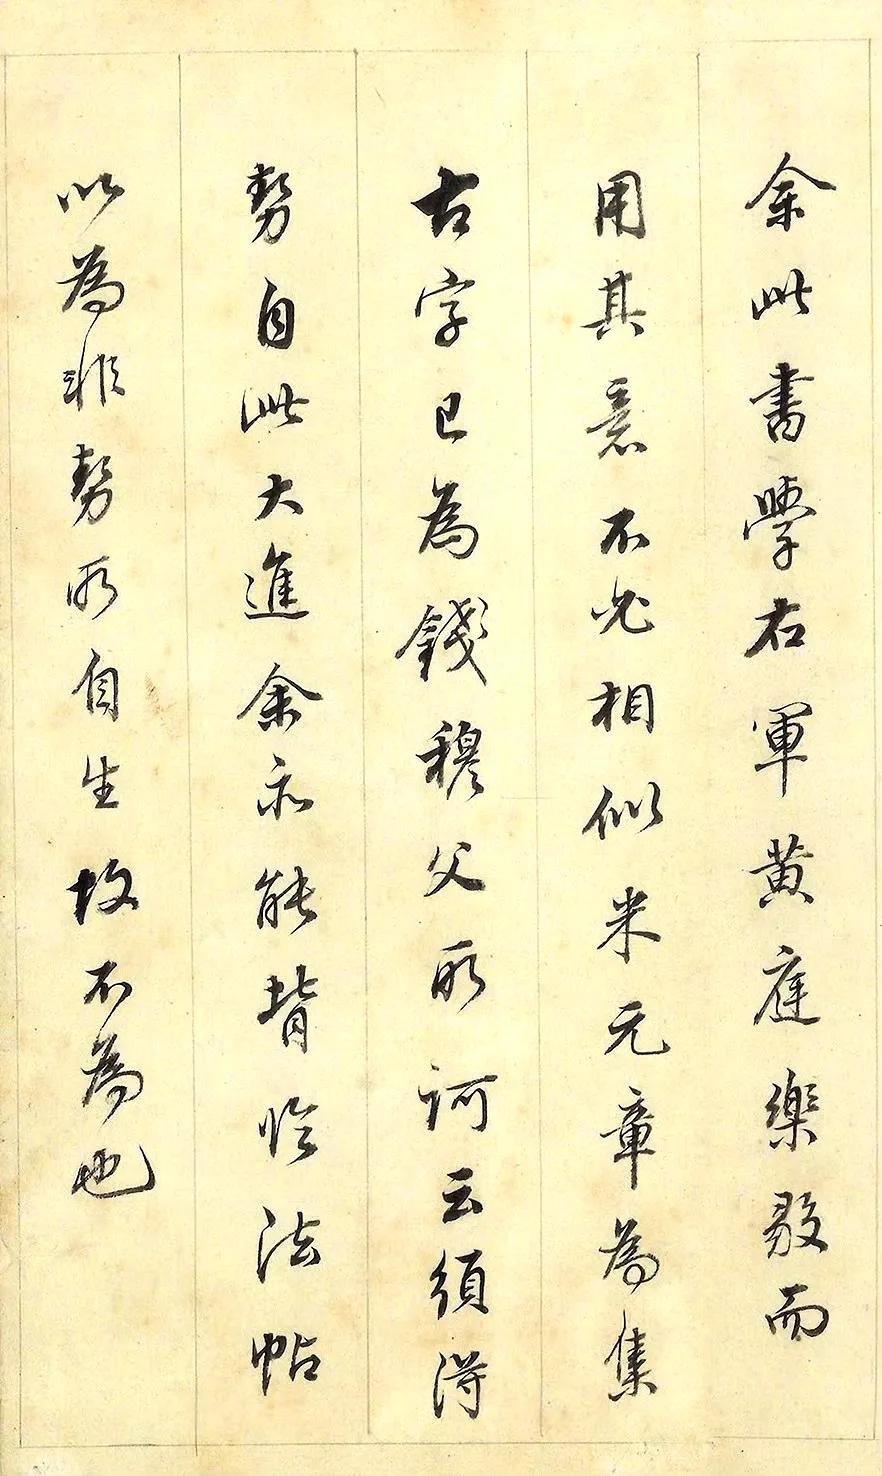 余此書學右軍黃庭樂毅而
用其意不必相似米元章為集
古字已為錢穆父所訶云須得
勢自此大進余亦能背臨法帖
以為非勢所自生故不為也